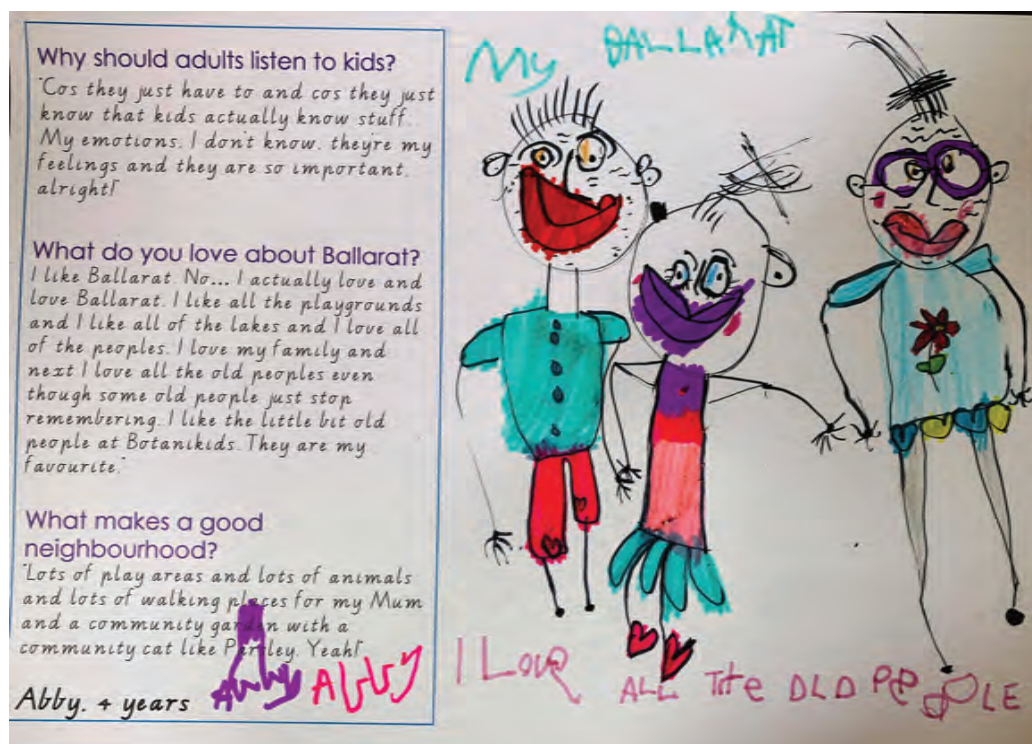 My BALLARAT
Why should adults listen to kids?
"Cos they just have to and cos they just
know that kids actually know stuff.
My emotions. I don't know, they're my
feelings and they are so important,
alright!"
What do you love about Ballarat?
I like Ballarat. No... I actually love and
love Ballarat. I like all the playgrounds
and I like all of the lakes and I love all
of the peoples. I love my family and
next I love all the old peoples even
though some old people just stop
remembering. I like the little bit old
people at Botanikids. They are my
favourite."
What makes a good
neighbourhood?
"Lots of play areas and lots of animals
and lots of walking places for my Mum
and a community garden with a
community cat like Yeah!"
Abby, 4 years
Abby Abby
I Love ALL THe OLD PePOLE